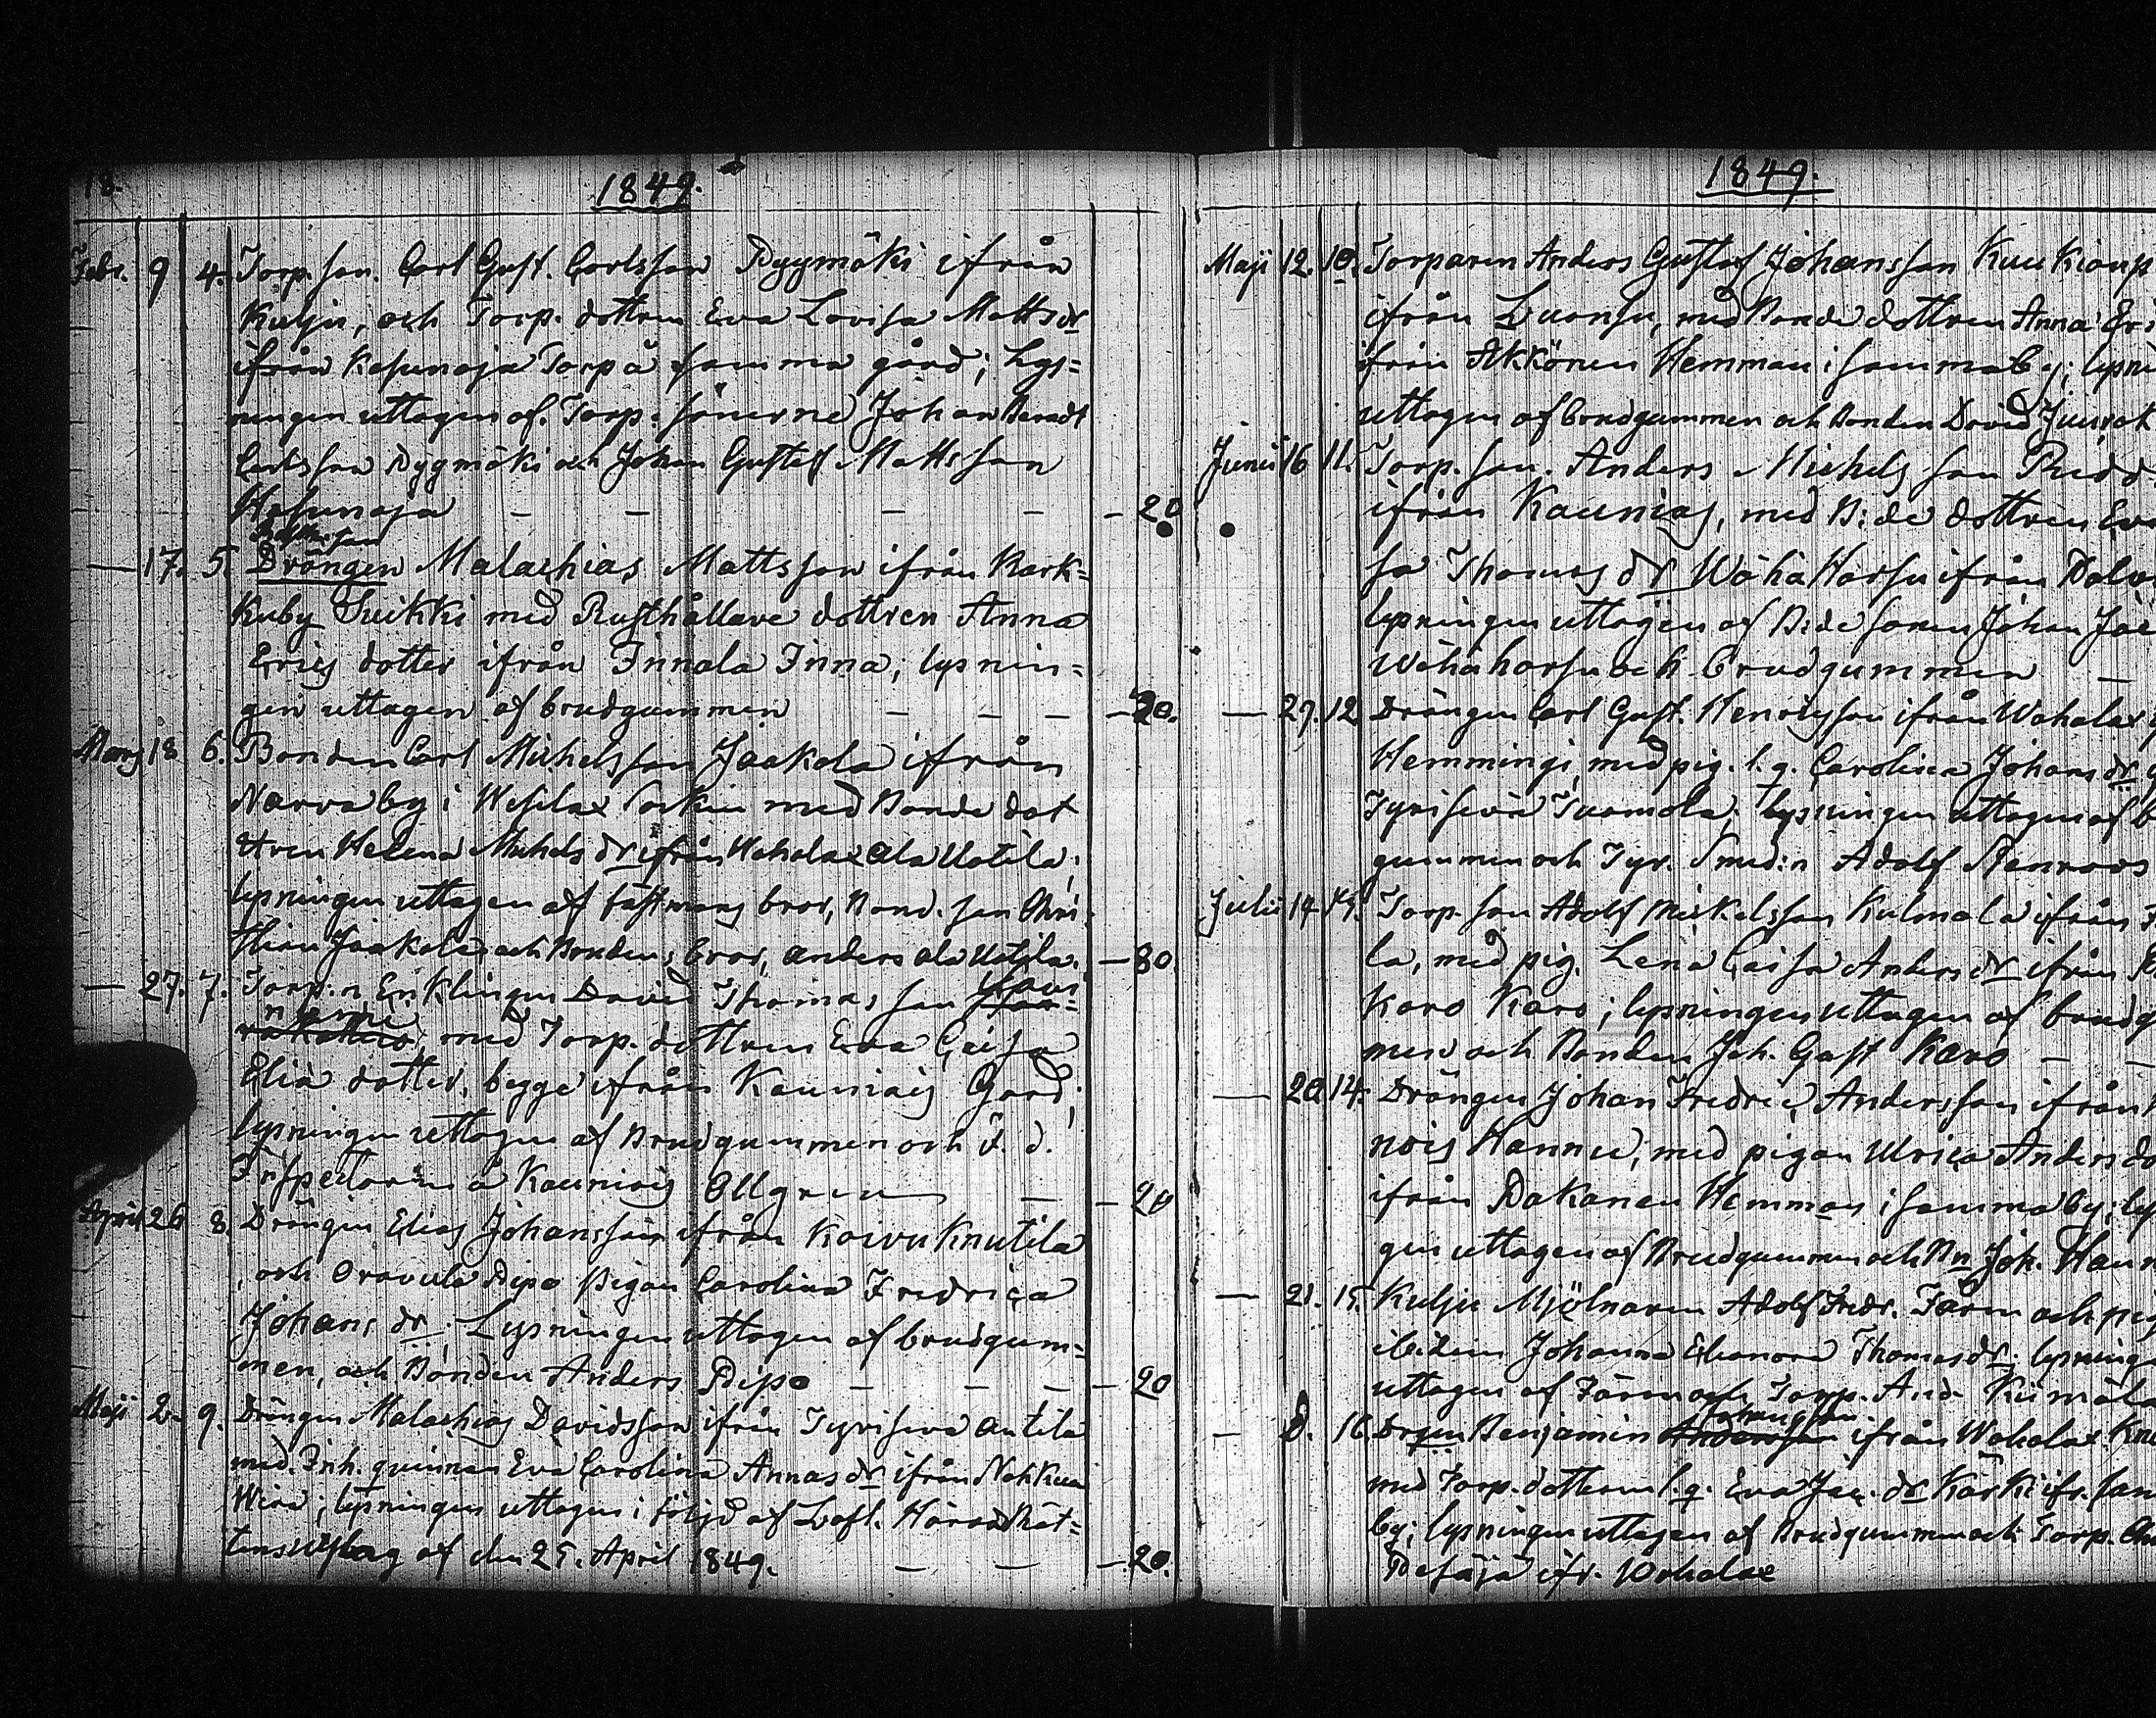 18.
1849.
Febr. 9 4. Torp. son. Carl Gust. Carlsson Pyymäki ifrån
Kulju, och Torp. dottren Eva Lovisa Matts dr
ifrån Hasunoja Torp å samma gård; Lys=
ningen uttagen af Torp. sönerne Johan
Carlsson Pyymäki och Johan Gustaf Mattsson
Hasunoja — — — — — 20
— 17. 5. Drängen Malachias Mattsson ifrån Kark=
kuby Heikki med Rusthållare dottren Anna
Erics dotter ifrån Innala Inna; lysnin=
gen uttagen af brudgummen — — — — 20.
Mars 18 6. Bonden Carl Michelsson Jaakola ifrån
Narva by i Wesilax Sockn med Bonde dot
tren Helena Michels dr ifrån Wahalax Ala Uotila;
lysningen uttagen af fästmans bror, Bond. son Chri
stian Jaakola och Bondens bror, Anders Ala Uotila. — 80.
— 27. 7. Torp:n Enklingen David Thomas son
niemi med Torp. dottren Eva Caisa
Elia dotter, begge ifrån Kauniais Gård;
lysningen uttagen af Brudgummen och F. d.
Inspectoren å Kauniais Allgren — — 20
April 26 8. Drängen Elias Johansson ifrån Koivu Knutila
, och Oravula Pipo pigan Carolina Fredrica
Johans dr; Lysningen uttagen af brudgum=
men, och Bonden Anders Pipo — — — — 20
Maji 2. 9. Drängen Malachias Davidsson ifrån Tyrisevä Antila
med Inh. qvinnan Eva Carolina Annas dr ifrån Nokkua
; lysningen uttagen i följd af Lofl. Härads Rät=
tens utslag af den 25. April 1849. — — — 20.
1849.
Maji 12. 10. Torparen Anders Gustaf Johansson
ifrån Luonsu, med Bonde dottren Anna
ifrån Akkönen Hemman i samma by; lysni
uttagen af brudgummen och Bonden David
Junii 16 11. Torp. son. Anders Michels son
ifrån Kauniais, med B:de dottren
sa Thomas dr Wähä Horsu ifrån
lysningen uttagen af B:de sonen Johan
Wähähorsu och brudgummen —
— 27. 12 Drängen Carl Gust. Henricsson ifrån Wahalax
Hemmingi, med pig. l. q. Carolina Johans dr
Tyrisevä Tuomola; lysningen uttagen af
gummen och Tyr. Smed:n Adolf Stenroos
Julii 14 13. Torp. son Adolf Mickelsson Kulmala ifrån
la, med pig. Lena Caisa Anders dr ifrån
Karo Karo; lysningen uttagen af brudg
men och Bonden Joh. Gust Karo — —
— 20 14. Drängen Johan Fredric Andersson ifrån
nois Hannu, med pigan Ulrica Anders
ifrån Pakanen Hemman i samma by; ly
gen uttagen af Brudgummen och Bn Joh.
— 21. 15. Kulju Mjölnaren Adolf Fredr. Färm och
ibidem Johanna Eleonora Thomas dr; lysning
uttagen af Färm och Torp. And.
— d. 16. Drgen Benjamin Johansson ifrån Wahalax
med Torp. dottren l. q. Eva Jac. dr Kärki ifr. sam
by; lysningen uttagen af Brudgummen och Torp.
ifr. Wahalax